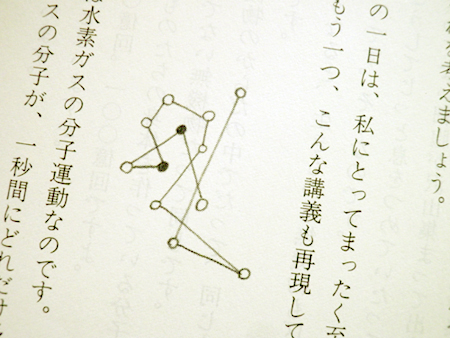 を考えましょう。
の一日は、私にとってまったく至
もう一つ、こんな講義も再現して
は水素ガスの分子運動なのです。
スの分子が、一秒間にどれだけ